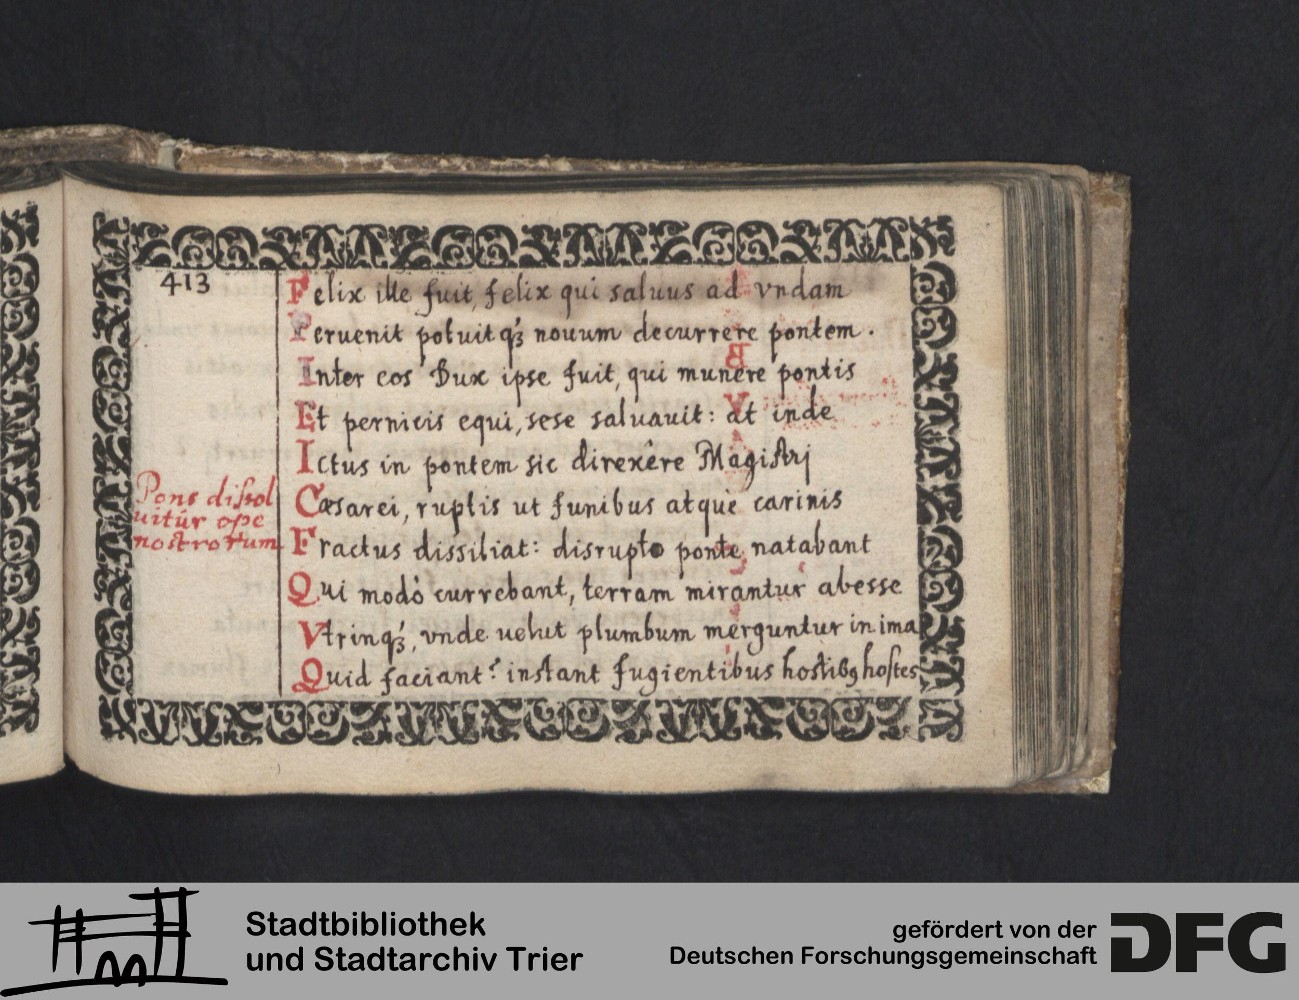 413
Felix ille fuit, felix qui saluus ad vndam
Peruenit potuitqꝫ nouum decurrere pontem.
Inter eos Dux ipse fuit, qui munere pontis
Et pernicis equi, sese saluauit: at inde
Ictus in pontem sic direxêre Magistrj
Cæsarei, ruptis ut funibus atque carinis
Pons dissol
uitur ope
nostrorum
Fractus dissiliat: disrupto ponte natabant
Qui modò currebant, terram mirantur abesse
Vtrinqꝫ, vnde uelut plumbum merguntur in ima
Quid faciant? instant fugientibus hostibꝰ hostes
Stadtbibliothek
und Stadtarchiv Trier
gefördert von der
Deutschen Forschungsgemeinschaft
DFG